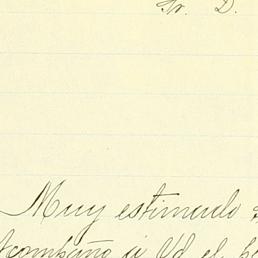 Sr. D.
Muy estimado
Acompaño á Vd el